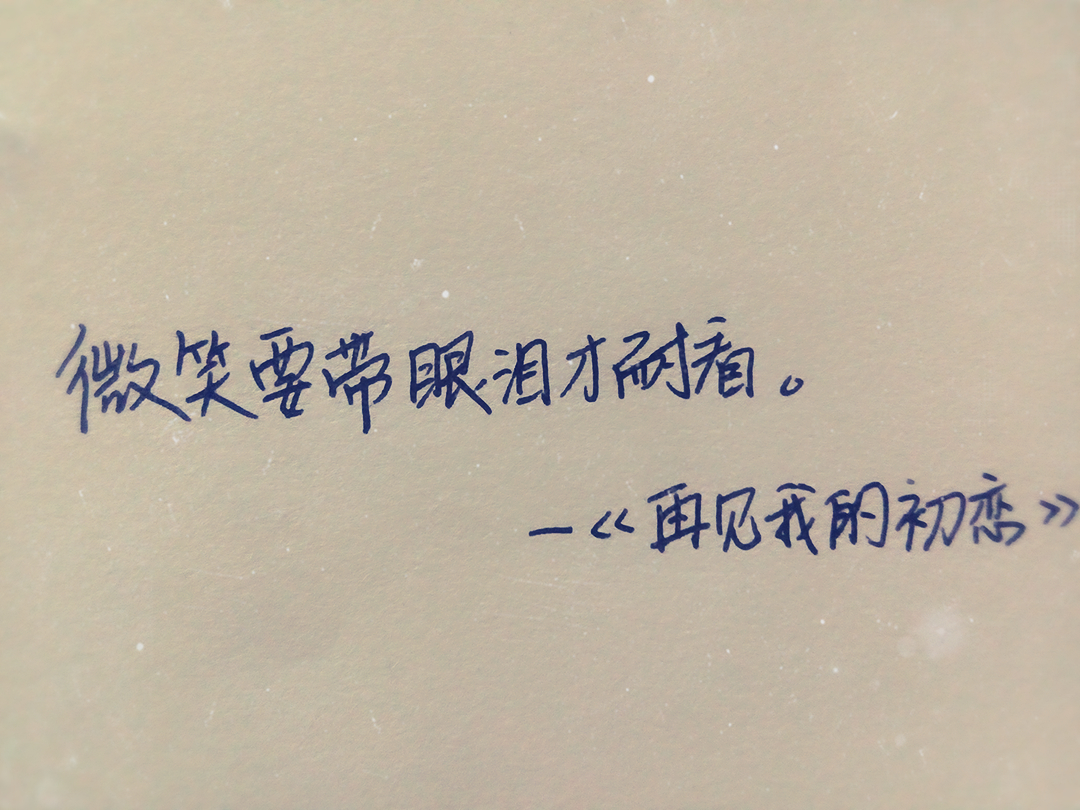 微笑要带眼泪才耐看。
—《再见我的初恋》